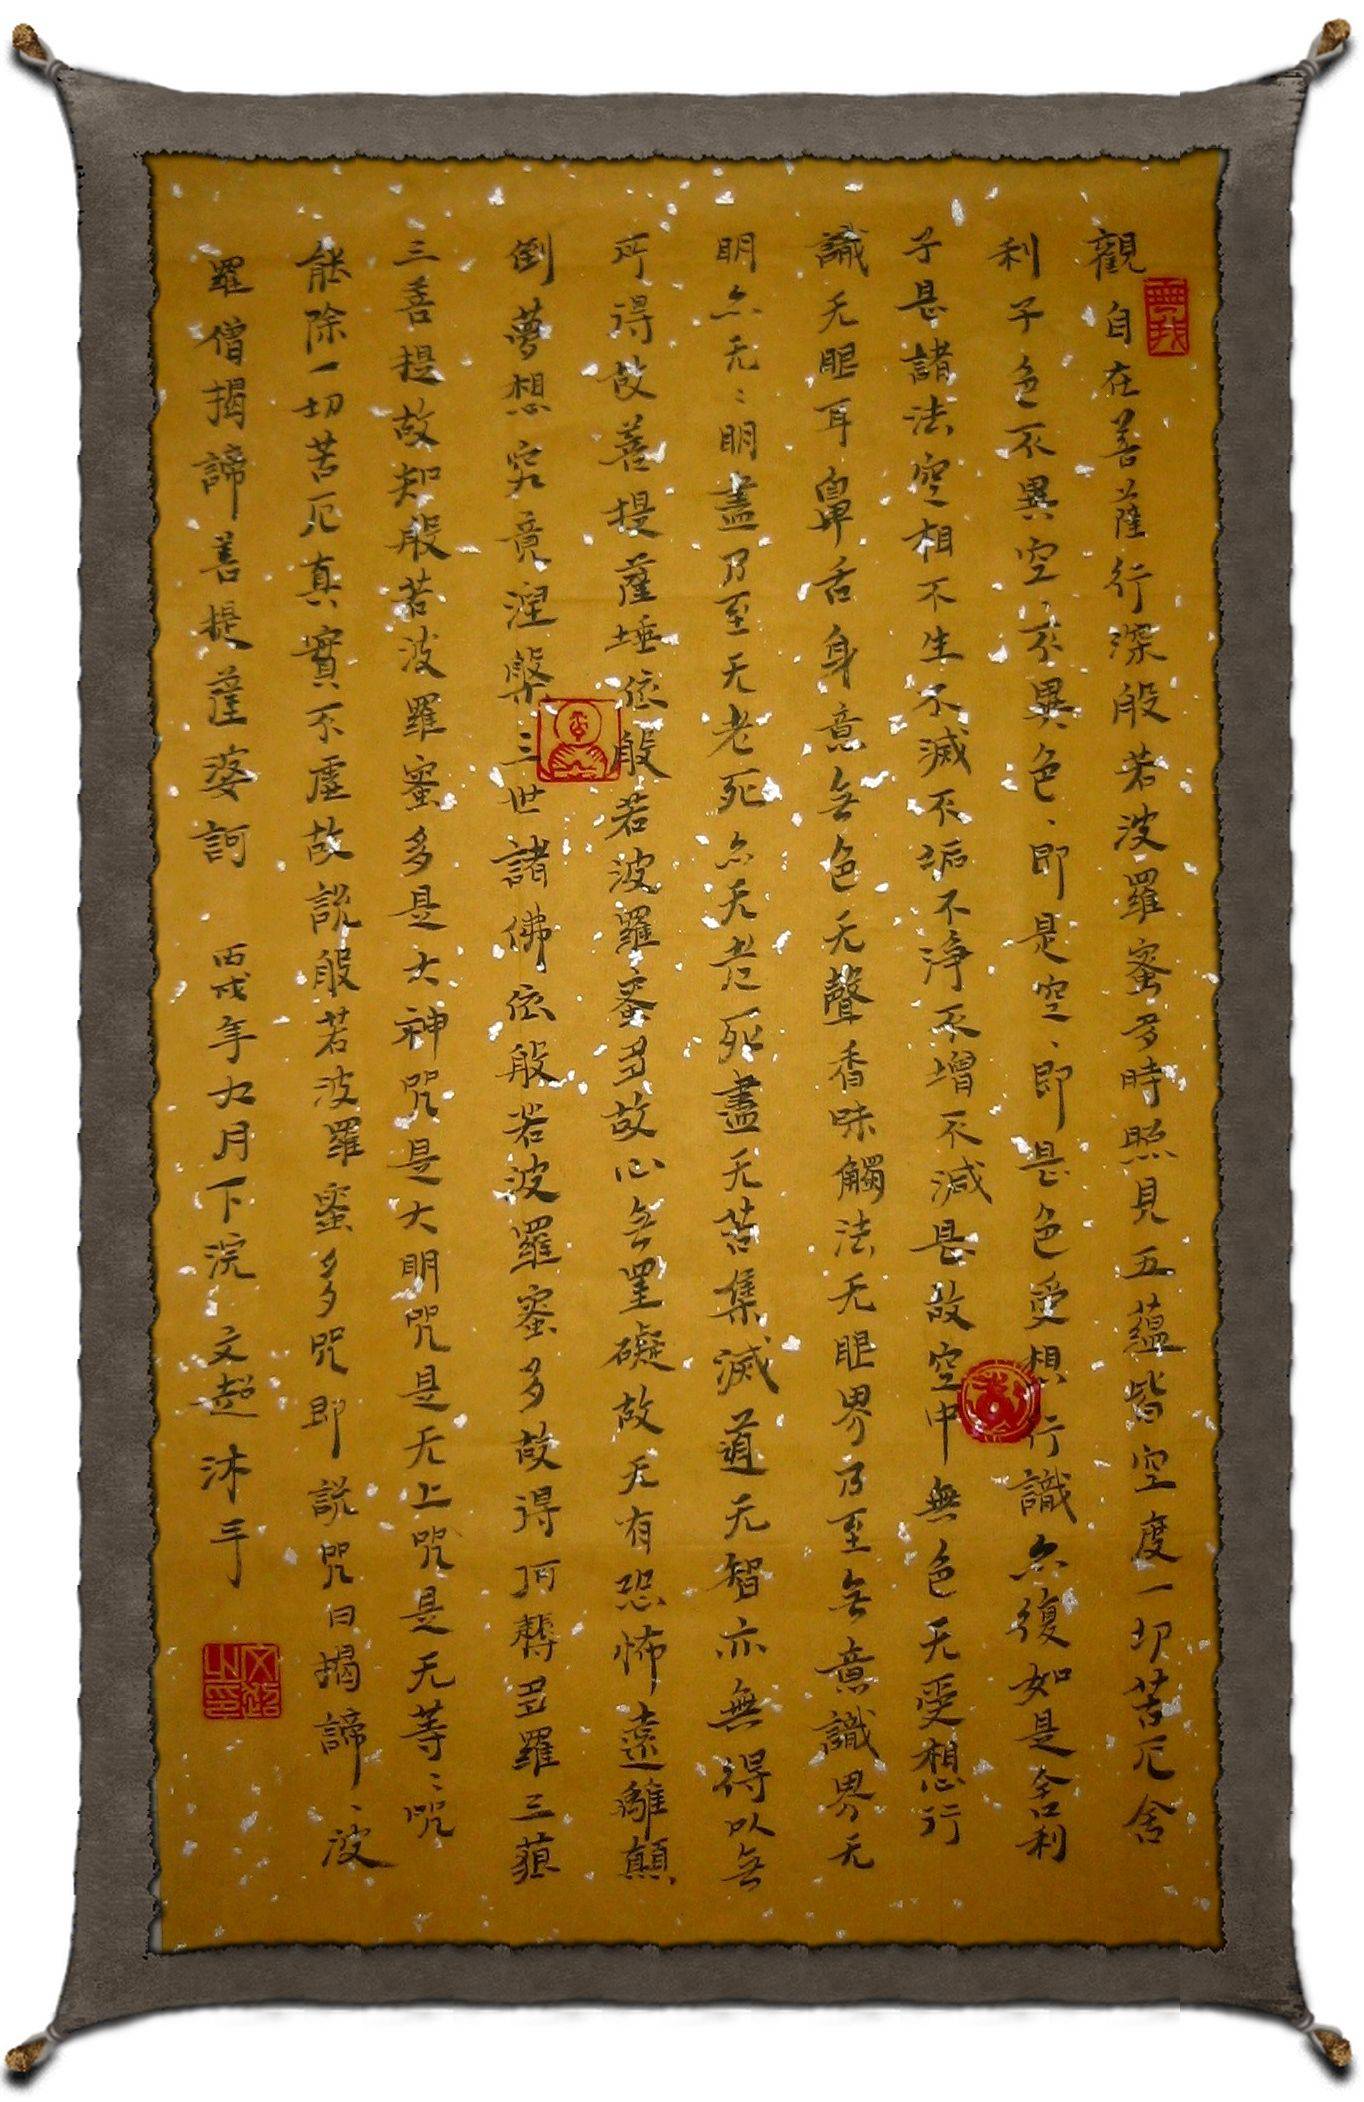 觀自在菩薩行深般若波羅蜜多時照見五蘊皆空度一切苦厄舍
利子色不異空、不異色、即是空、即是色受想行識亦復如是舍利
子是諸法空相不生不滅不垢不淨不增不減是故空中無色无受想行
識无眼耳鼻舌身意無色无聲香味觸法无眼界乃至無意識界无
明亦无〻明盡乃至无老死亦无老死盡无苦集滅道无智亦無得以無
所得故菩提薩埵依般若波羅蜜多故心無罣礙故无有恐怖遠離顛
倒夢想究竟涅槃三世諸佛依般若波羅蜜多故得阿耨多羅三藐
三菩提故知般若波羅蜜多是大神咒是大明咒是无上咒是无等〻咒
能除一切苦厄真實不虛故說般若波羅蜜多咒即說咒曰揭諦、波
羅僧揭諦菩提薩婆訶 丙戌年九月下浣 文超沐手